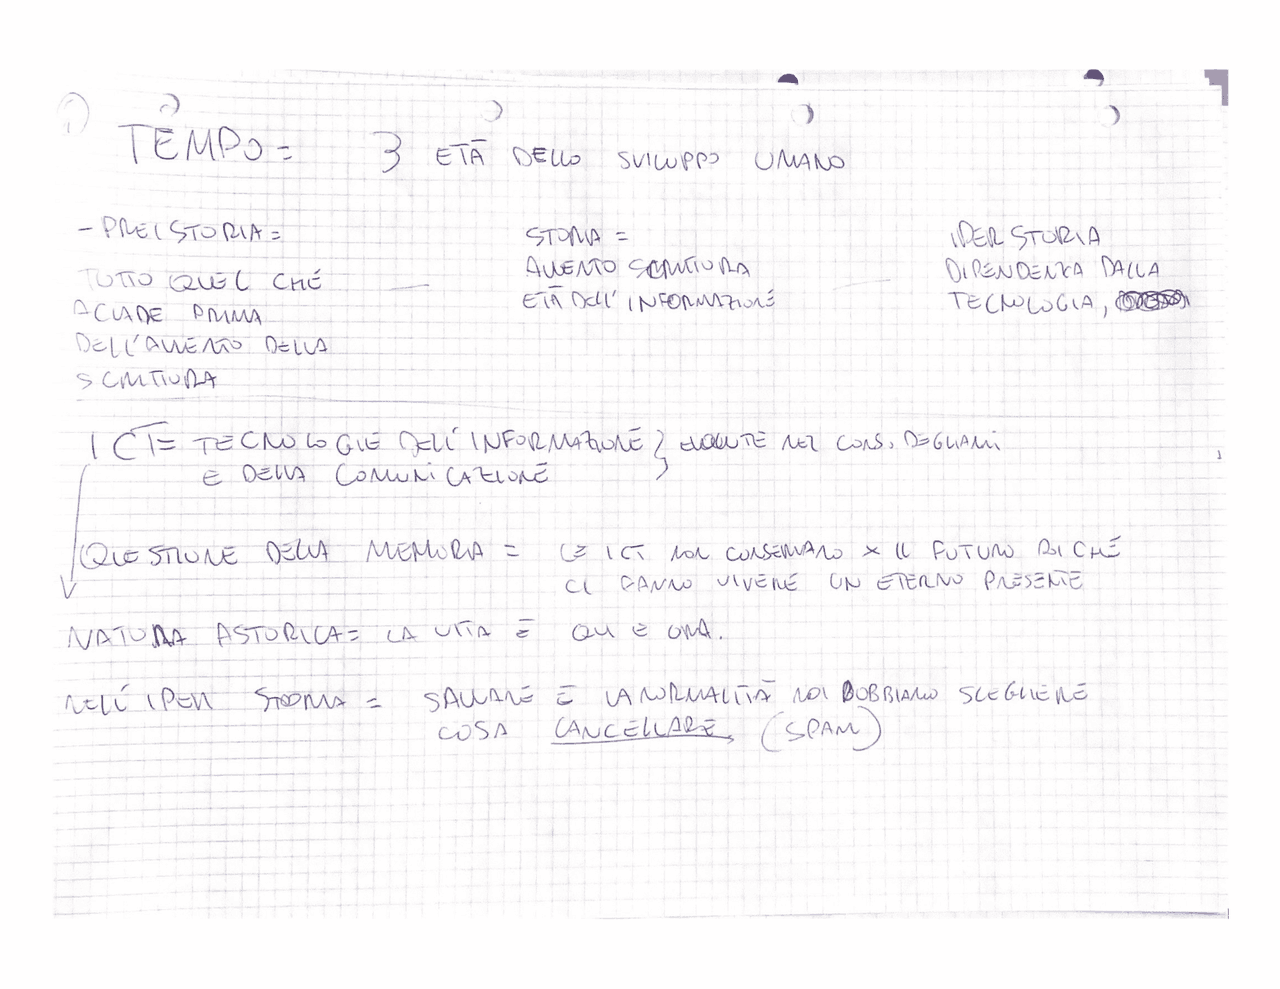 1
TEMPO = 3 ETÀ DELLO SVILUPPO UMANO
- PREISTORIA =
TUTTO QUEL CHÉ
ACCADE PRIMA
DELL'AVVENTO DELLA
SCRITTURA
STORIA =
AVVENTO SCRITTURA
ETÀ DELL'INFORMAZIONE
IPERSTORIA
DIPENDENZA DALLA
TECNOLOGIA,
ICT = TECNOLOGIE DELL'INFORMAZIONE } EVOLUTE NEL CORS. DEGLI ANNI
E DELLA COMUNICAZIONE
QUESTIONE DELLA MEMORIA = LE ICT NON CONSERVANO X IL FUTURO POICHÉ
CI FANNO VIVERE UN ETERNO PRESENTE
NATURA ASTORICA = LA VITA È QUI E ORA.
NELL'IPER STORIA = SALVARE È LA NORMALITÀ NOI DOBBIAMO SCEGLIERE
COSA CANCELLARE, (SPAM)